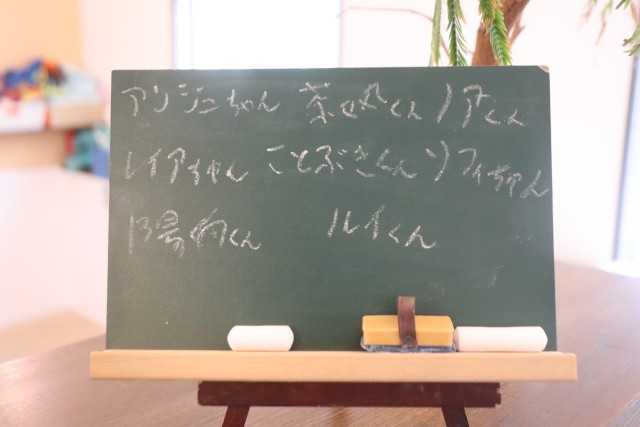 アンジュちゃん 茶々丸くん ノアくん
レイアちゃん ことぶきくん ソフィちゃん
陽向くん ルイくん